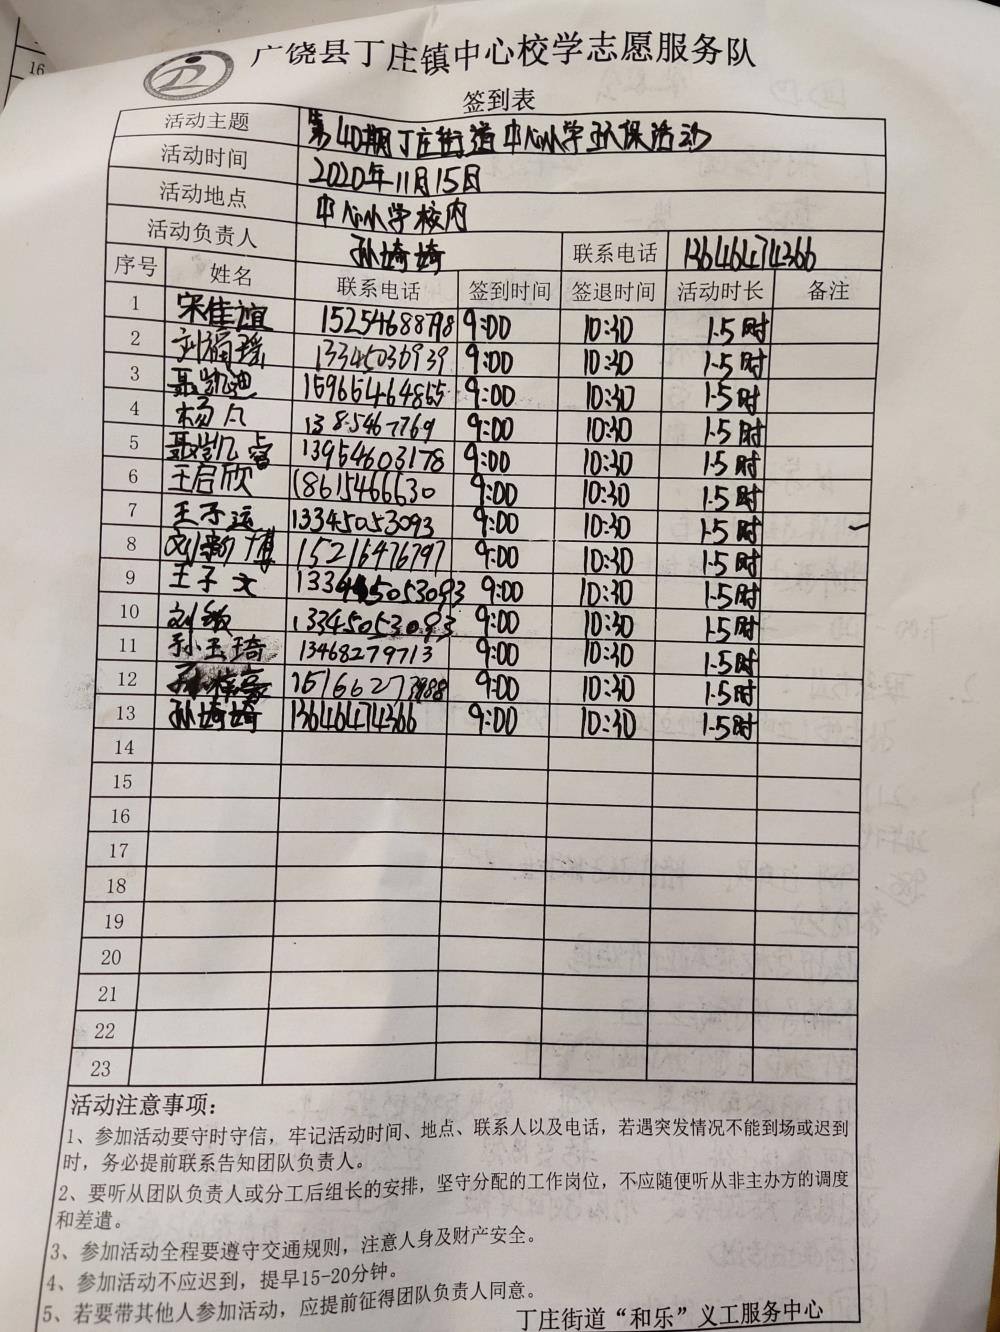 16
广饶县丁庄镇中心校学志愿服务队
签到表
活动主题 第40期丁庄街道中心小学环保活动
活动时间 2020年11月15日
活动地点 中心小学校内
活动负责人 孙埼埼 联系电话 13646474366
序号 姓名 联系电话 签到时间 签退时间 活动时长 备注
1 宋佳谊 15254688798 9:00 10:30 1.5时
2 刘福瑶 13345030939 9:00 10:30 1.5时
3 聂凯迪 15965464865 9:00 10:30 1.5时
4 杨凡 9:00 10:30 1.5时
5 聂凯睿 13954603178 9:00 10:30 1.5时
6 王启欣 18615466630 9:00 10:30 1.5时
7 王子运 13345053093 9:00 10:30 1.5时
8 博 15216476797 9:00 10:30 1.5时
9 王子文 9:00 10:30 1.5时
10 刘 13345053093 9:00 10:30 1.5时
11 孙玉琦 13468279713 9:00 10:30 1.5时
12 孙梓豪 9:00 10:30 1.5时
13 孙埼埼 13646474366 9:00 10:30 1.5时
14
15
16
17
18
19
20
21
22
23
活动注意事项：
1、参加活动要守时守信，牢记活动时间、地点、联系人以及电话，若遇突发情况不能到场或迟到
时，务必提前联系告知团队负责人。
2、要听从团队负责人或分工后组长的安排，坚守分配的工作岗位，不应随便听从非主办方的调度
和差遣。
3、参加活动全程要遵守交通规则，注意人身及财产安全。
4、参加活动不应迟到，提早15-20分钟。
5、若要带其他人参加活动，应提前征得团队负责人同意。
丁庄街道“和乐”义工服务中心